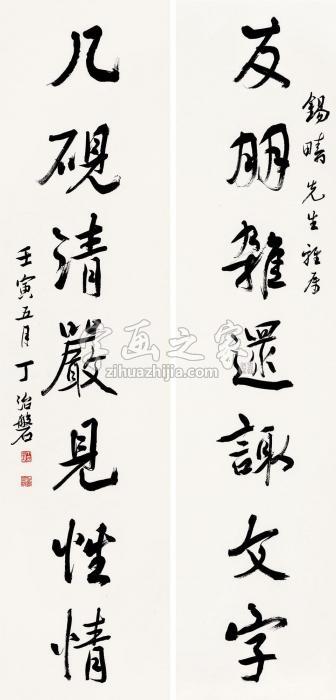 錫疇先生雅屬
友朋雜還諏文字
几硯清嚴見性情
壬寅五月丁治磐
字画之家
zihuazhijia.com